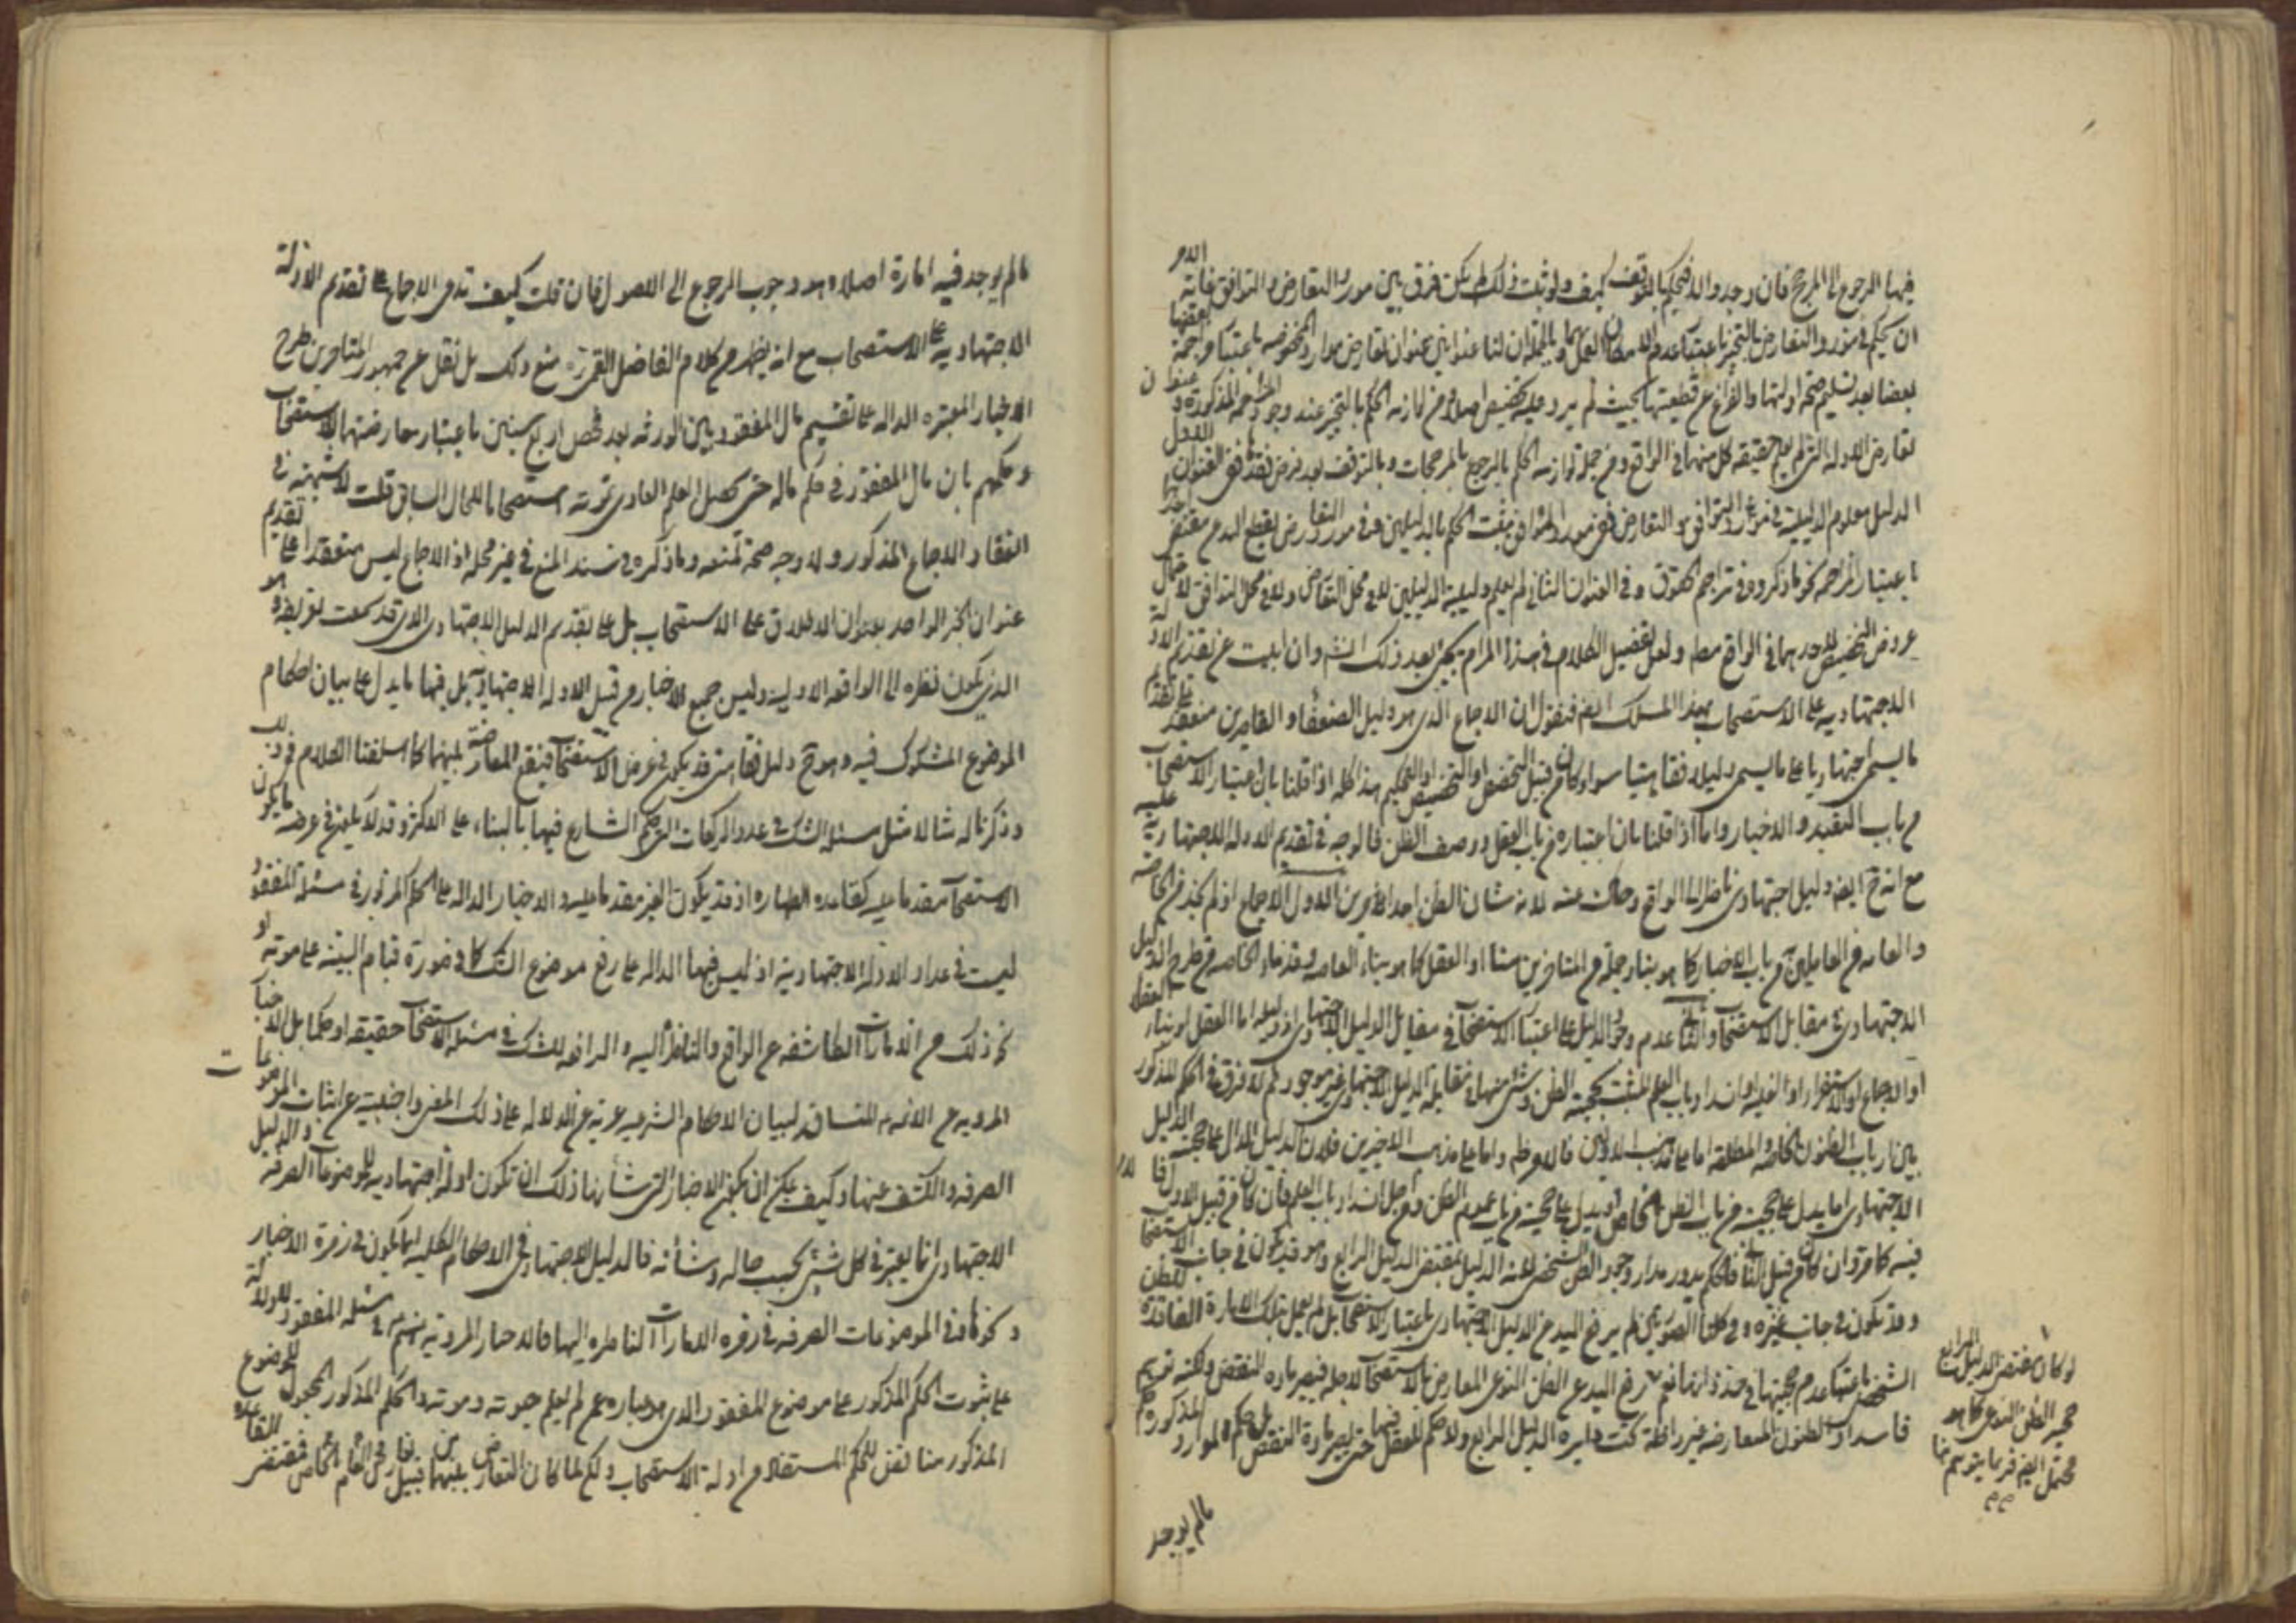 فيها الرجوع الى المرجح فان وجد والا فيحكم بالتوقف كيف ولو ثبت ذلك لم يكن فرق بين مورد التعارض والتوافق غاية الامر
ان يحكم في مورد التعارض بالتخيير باعتبار عدم امكان العمل بهما وبالجملة ان لنا عنوانين عنوان تعارض موارد باعتبار مزاحمة بعضها
بعضا بعد تسليم صحة ادلتها والفراغ عن قطعيتها بحيث لم يرد عليه تخصيص اصلا ومن لوازمه الحكم بالتخيير عند وجود المزاحمة المذكورة وعنوان
تعارض الادلة التي لم يعلم حقيقة كل منها في الواقع ومن جملة لوازمه الحكم بالرجوع بالمرجحات وبالتوقف بعد فرض فقدها ففي العنوان الاول
الدليل معلوم الدليلية في موارد التوافق والتعارض ففي مورد التوافق يثبت الحكم بالدليلين وفي مورد التعارض يقطع اليد عن مقتضى احدهما
باعتبار المزاحمة نحو ما ذكروه في تزاحم الحقوق وفي العنوان الثاني لم يعلم دليلية الدليلين لا في محل التعارض ولا في محل التوافق لاحتمال
عروض التخصيص لاحدهما في الواقع مطلقا ولعل تفصيل الكلام في هذا المرام يجيء بعد ذلك انشاء وان ابيت عن تقديم الادلة
الاجتهادية على الاستصحاب بهذا المسلك ايضا فنقول ان الاجماع الذي هو دليل الضعفاء والقاصرين منعقد على تقديم
ما يسمى اجتهاديا على ما يسمى دليلا فقاهتيا سواء كان من قبيل التخصص او التخصيص او التحكيم هذا كله اذا قلنا بان اعتبار الاستصحاب
من باب التعبد والاخبار واما اذا قلنا بان اعتباره من باب العقل ووصف الظن فالوجه في تقديم الادلة الاجتهادية عليه
مع انه ح ايضا دليل اجتهادي ناظر الى الواقع وحاك عنه لانه شان الظن احد الامرين الاول الاجماع اذ لم نجد من الخاصة
والعامة من العاملين به من باب الاخبار كما هو بناء جملة من المتاخرين منا او العقل كما هو بناء العامة وقدماء الخاصة من طرح الدليل
الاجتهادي في مقابل الاستصحاب والثاني عدم وجود الدليل على اعتبار الاستصحاب في مقابل الدليل الاجتهادي اذ دليله اما العقل او بناء العقلاء
او الاجماع او الاستقراء او الغلبة وانسداد باب العلم المثبت لحجية الظن وشيء منها في مقابلة الدليل الاجتهادي غير موجود ثم لا فرق في الحكم المذكور
بين ارباب الظنون الخاصة والمطلقة اما على مذهب الاولين فالامر ظاهر واما على مذهب الاخيرين فلان الدليل الدال على حجية الدليل
الاجتهادي اما يدل على حجيته من باب الظن الخاص او يدل على حجيته من باب عموم الظن ومن اجل انسداد باب العلم فان كان من قبيل الاول
فيه كما مر وان كان من قبيل الثاني فالحكم يدور مدار وجود الظن الشخصي لانه الدليل بمقتضى الدليل الرابع وهو قد يكون في جانب الاستصحاب
وقد يكون في جانب غيره وفي كلتا الصورتين لم يرفع اليد عن الدليل الاجتهادي باعتبار الاستصحاب بل لم يعمل بتلك الامارة الفاقدة للظن
الشخصي باعتبار عدم حجيتها في حد ذاتها نعم رفع اليد عن الظن النوعي المعارض بالاستصحاب لاجله فيصير مادة للنقض ولكنه توهم
فاسد اذ الظنون المتعارضة غير داخلة تحت دايرة الدليل الرابع ولا حكم للعقل فيها حتى يصير مادة النقض بل حكم الموارد المذكورة حكم
لو كان مقتضى الدليل الرابع
حجية الظن النوعي كما هو
محتمل ايضا فربما يتوهم
ما لم يوجد
ما لم يوجد فيه امارة اصلا وهو وجوب الرجوع الى الاصول فان قلت كيف تدعى الاجماع على تقديم الادلة
الاجتهادية على الاستصحاب مع انه يظهر من كلام الفاضل القمي منع ذلك بل نقل عن جمهور المتاخرين طرح
الاخبار المعتبرة الدالة على تقسيم مال المفقود بين الورثة بعد فحص اربع سنين باعتبار معارضتها بالاستصحاب
وحكمهم بان مال المفقود في حكم ماله حتى يحصل العلم العادي بموته استصحابا للحال السابق قلت لا شبهة في
انعقاد الاجماع المذكور ولا وجه صحة لمنعه وما ذكره في سند المنع في غير محله اذ الاجماع ليس منعقدا على تقديم
عنوان الخبر الواحد بعنوان الاطلاق على الاستصحاب بل على تقديم الدليل الاجتهادي الذي قد سمعت تعريفه وهو
الذي يكون نظره الى الواقعة الاولية وليس جميع الاخبار من قبيل الادلة الاجتهادية بل فيها ما يدل على بيان احكام
الموضوع المشكوك فيه وهو ح دليل فقاهتي قد يكون في عرض الاستصحاب فيقع المعارضة بينهما كما اسلفنا الكلام في ذلك
وذكرنا له مثالا مثل مسئلة الشك في عدد الركعات التي حكم الشارع فيها بالبناء على الاكثر وقد لا يكون في عرضه ما يكون
الاستصحاب مقدما عليه كقاعدة الطهارة اذ قد يكون الغير مقدما عليه والاخبار الدالة على الحكم المزبور في مسئلة المفقود
ليست في عداد الادلة الاجتهادية اذ ليس فيها الدالة على رفع موضوع الشك كما في صورة قيام البينة على موته او
نحو ذلك من الامارات الكاشفة عن الواقع والناظرة اليه والرافعة للشك في مسئلة الاستصحاب حقيقة او حكما بل الاخبار
المروية عن الائمة المساقة لبيان الاحكام الشرعية عرية عن الدلالة على ذلك المعنى واجنبية عن اثبات الموضوعات
الصرفة والكشف عنها وكيف يمكن ان يكون الاخبار التي شأنها ذلك ان تكون ادلة اجتهادية للموضوعات الصرفة والدليل
الاجتهادي انما يعتبر في كل شيء بحسب حاله وشأنه فالدليل الاجتهادي في الاحكام الكلية انما يكون في زمرة الاخبار
ونحوها وفي الموضوعات الصرفة في زمرة الامارات الناظرة اليها فالاخبار المروية عنهم في مسئلة المفقود للدلالة
على ثبوت الحكم المذكور على موضوع المفقود الذي هو عبارة عمن لم يعلم حيوته وموته والحكم المذكور المجعول للموضوع
المذكور مناقض للحكم المستفاد من ادلة الاستصحاب ولكن لما كان التعارض بينهما من قبيل تعارض العام والخاص فمقتضى القاعدة